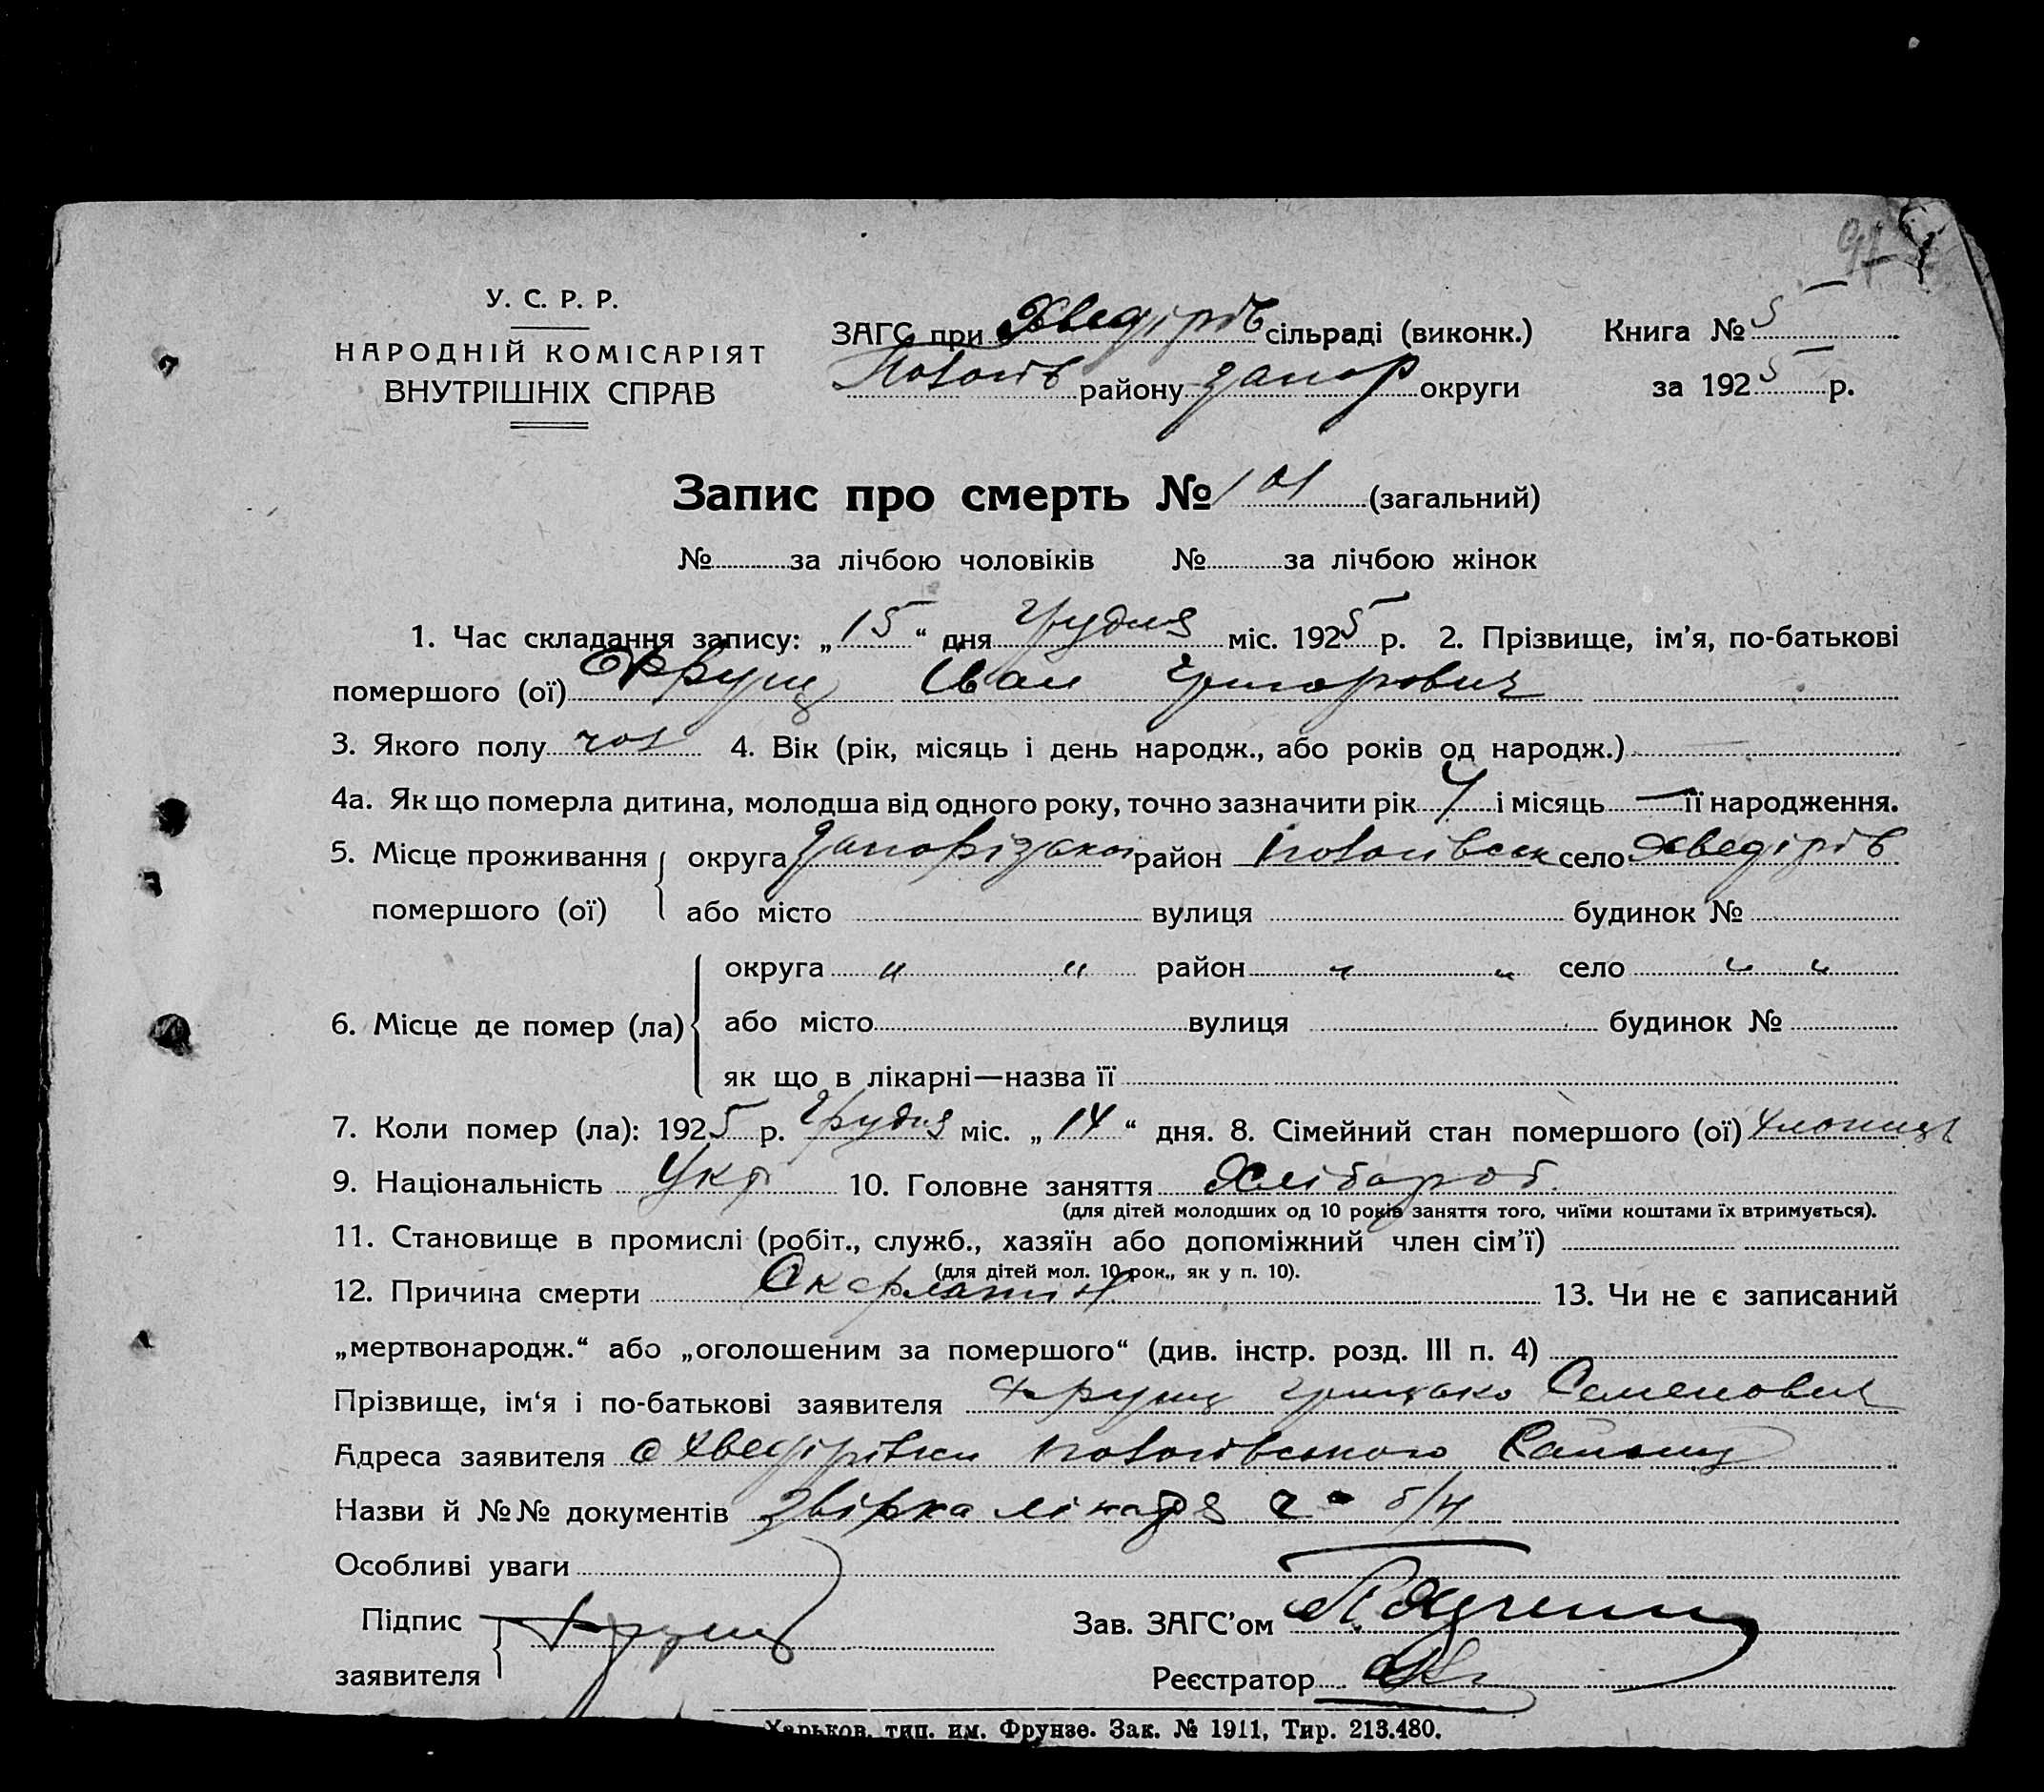 У. С. Р. Р.
НАРОДНІЙ КОМІСАРІЯТ
ВНУТРІШНІХ СПРАВ
ЗАГС при Хведірів сільраді (виконк.) Книга № 5
району Запор округи за 1925 р.
Запис про смерть № 101 (загальний)
№ за лічбою чоловіків № за лічбою жінок
1. Час складання запису: „15“ дня Грудня міс. 1925 р. 2. Прізвище, ім’я, по-батькові
помершого (ої) Фрунц Іван Григорович
3. Якого полу чол 4. Вік (рік, місяць і день народж., або років од народж.) —
4а. Як що померла дитина, молодша від одного року, точно зазначити рік 4 і місяць — її народження.
5. Місце проживання помершого (ої) округа Запорізької район село Хведірів
або місто вулиця будинок №
6. Місце де помер (ла) округа " " район " " село " "
або місто вулиця будинок №
як що в лікарні—назва її
7. Коли помер (ла): 1925 р. Грудня міс. „14“ дня. 8. Сімейний стан помершого (ої) Хлопець
9. Національність Укр 10. Головне заняття Хлібороб.
(для дітей молодших од 10 років заняття того, чиїми коштами їх втримується).
11. Становище в промислі (робіт., служб., хазяїн або допоміжний член сім’ї)
(для дітей мол. 10 рок., як у п. 10).
12. Причина смерти Скарлатін 13. Чи не є записаний
„мертвонародж.“ або „оголошеним за помершого“ (див. інстр. розд. III п. 4)
Прізвище, ім‘я і по-батькові заявителя Фрунц Грицько Семенович
Адреса заявителя с Хведірівки Району
Назви й №№ документів лікаря б/н
Особливі уваги
Підпис заявителя Фрунц
Зав. ЗАГС’ом
Реєстратор
Харьков, тип. им. Фрунзе. Зак. № 1911, Тир. 213.480.